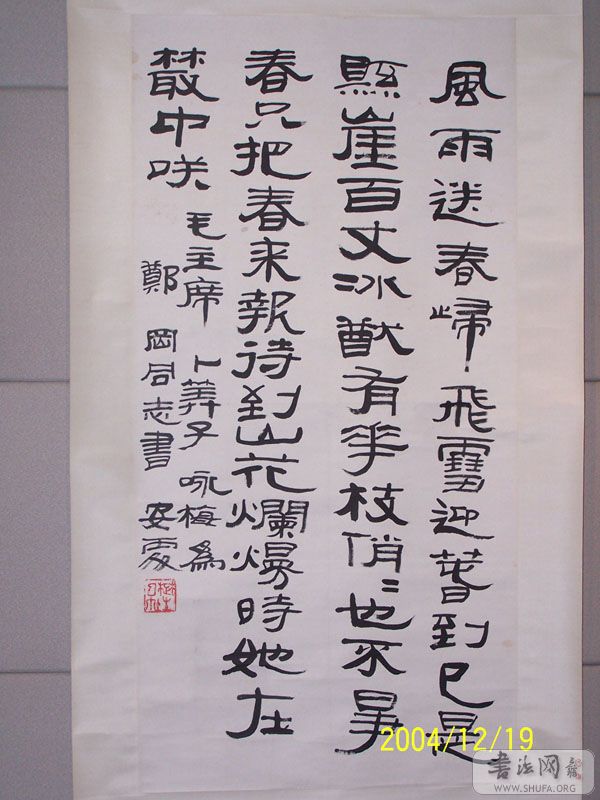 風雨送春歸飛雪迎春到已是
縣崖百丈冰猷有華枝俏〻也不爭
春只把春來報待到山花爛熳時她在
叢中咲
毛主席 卜算子 咏梅為
鄭岡同志書 安
2004/12/19
書法网
WWW.SHUFA.ORG